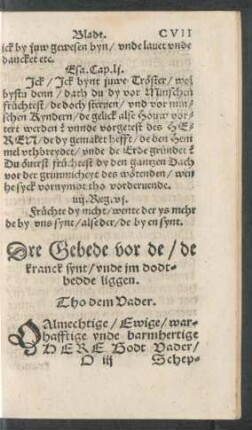 Blade. CVII
ick by juw gewesen byn / vnde lauet vnde
dancket etc.
Esa. Cap. lj.
Ick / Ick bynt juwe Tröster / wol
bystu denn / dath du dy vor Minschen
früchtest / de doch steruen / vnd vor minschen
Kyndern / de gelick alse Höuw vortert
werden? vnnde vorgetest des HEREN /
de dy gemaket hefft / de den Hemmel
vthbreydet / vnde de Erde gründet?
Du öuerst früchtest dy den gantzen Dach
vor der grimmicheyt des wötenden / wen
he syck vornympt tho vorderuende.
iiij. Reg. vj.
Früchte dy nicht / wente der ys mehr
de by vns synt / alse der / de by en synt.
Dre Gebede vor de / de
kranck synt / vnde jm dodtbedde
liggen.
Tho dem Vader.
O Almechtige / Ewige / warhafftige
vnde barmhertige
HERE Godt Vader /
O iij Schep-